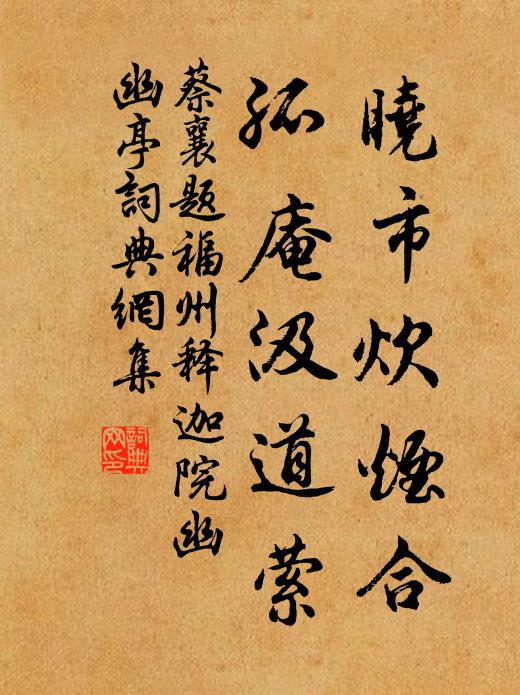 曉市炊煙合
孤庵汲道縈
蔡襄題福州释迦院幽
幽亭詞典網集
詞典网印